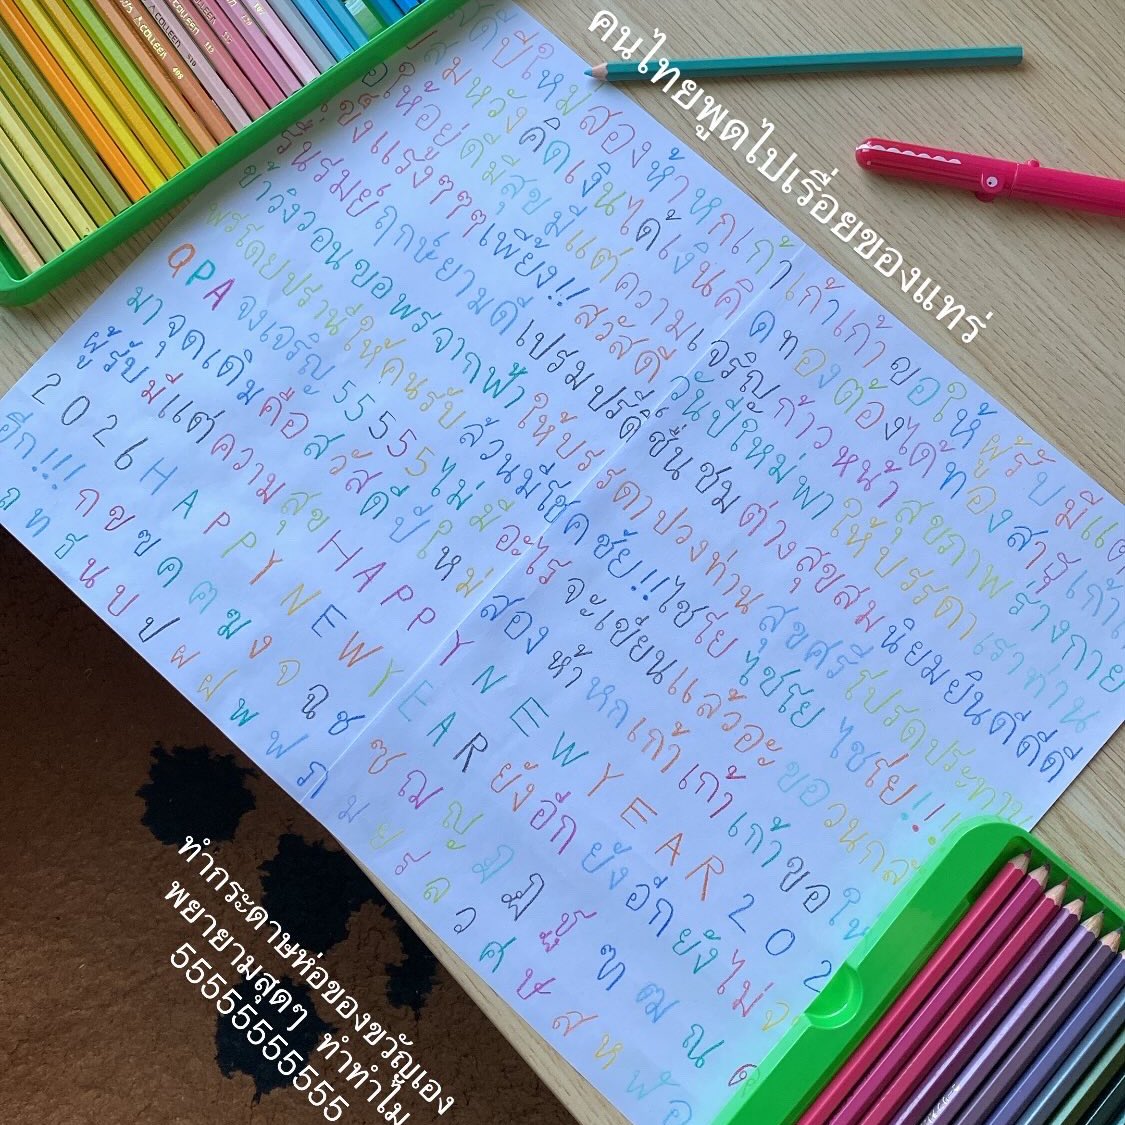 คนไทยพูดไปเรื่อยของแทร่
สวัสดีปีใหม่สองห้าหกเก้าเก้าเก้าขอให้ผู้รับมีแต่
สมหวังคิดเงินได้เงินคิดทองต้องได้ทองสาธุ
ขอให้อยู่ดีมีสุขมีแต่ความเจริญก้าวหน้าสุขภาพร่างกาย
แข็งแรงๆๆๆเพี้ยง!!สวัสดีวันปีใหม่พาให้บรรดาเราท่าน
รื่นรมย์ฤกษ์ยามดีเปรมปรีดิ์ชื่นชมต่างสุขสมนิยมยินดีดีดี
ข้าวิงวอนขอพรจากฟ้าให้บรรดาปวงท่านสุขศรีโปรดประทาน
พรโดยปรานีให้คนรับล้วนมีโชคชัย!!ไชโย ไชโย ไชโย!!!
QPA จงเจริญ 55555ไม่มีอะไรจะเขียนแล้วอะขอวน
มาจุดเดิมคือสวัสดีปีใหม่สองห้าหกเก้าเก้าเก้าขอให้
ผู้รับมีแต่ความสุขHAPPY NEW YEAR 202
2026HAPPY NEW YEARยังอีกยังอีกยังไม่
อีก!!!กขฃคฅฆงจฉชซฌญฎฏฐฑฒณด
ถทธนบปผฝพฟภมยรลวศษสหฬอ
ทำกระดาษห่อของขวัญเอง
พยายามสุดๆ ทำทำไม
5555555555555
A.COLLEEN
A.COLLEEN